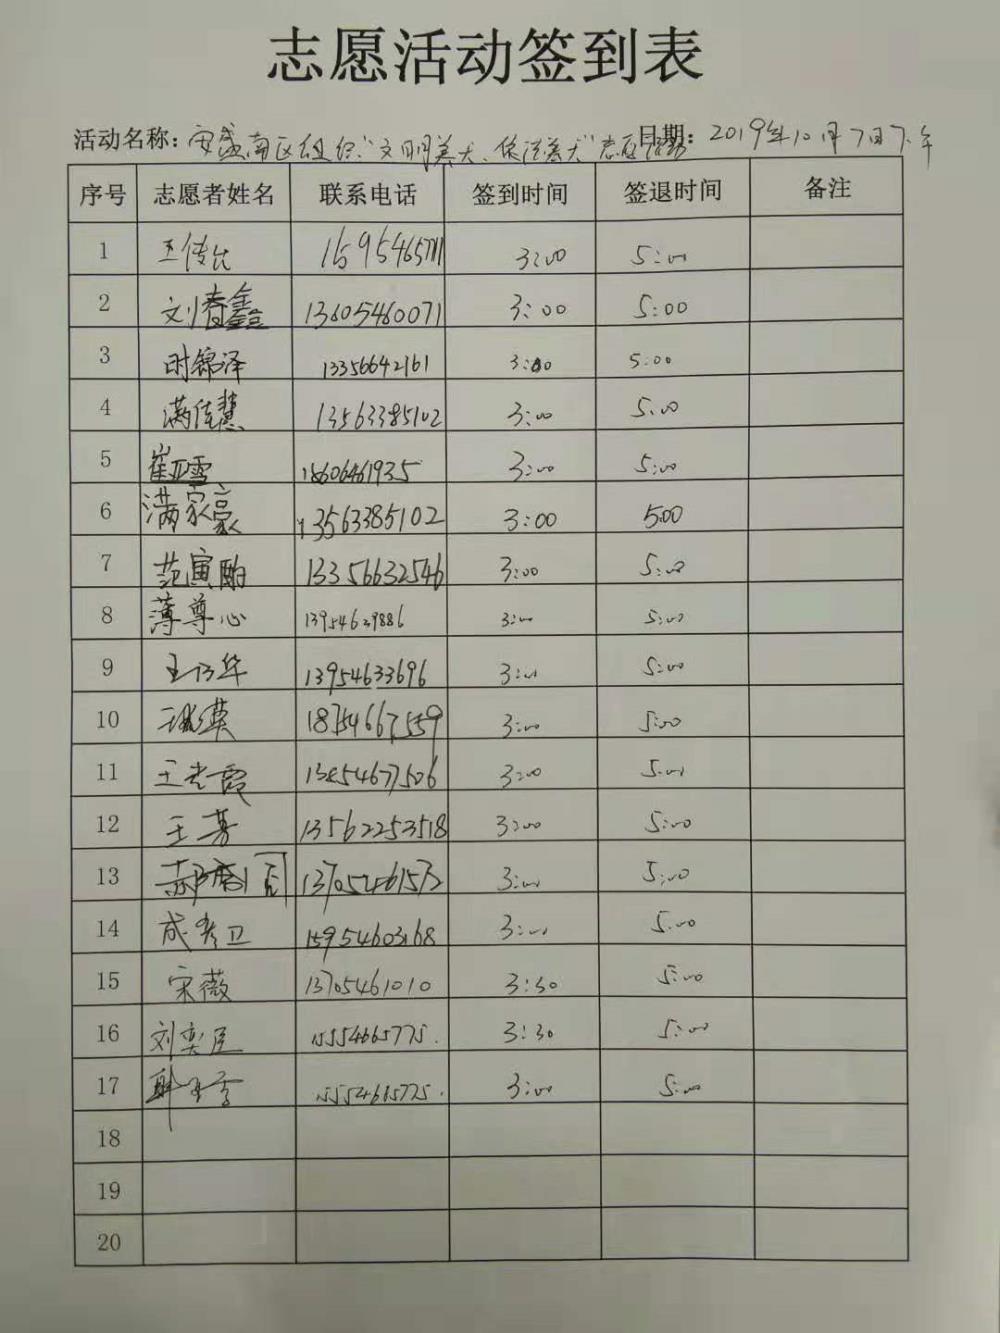 志愿活动签到表
活动名称：安盛南区组织"文明养犬、依法养犬"志愿活动 日期：2019年10月7日下午
序号 志愿者姓名 联系电话 签到时间 签退时间 备注
1 3:00 5:00
2 刘春鑫 13605460071 3:00 5:00
3 时锦泽 13356642161 3:00 5:00
4 满佳慧 13563385102 3:00 5:00
5 崔亚雪 15606461935 3:00 5:00
6 满家豪 13563385102 3:00 5:00
7 范寅酌 13356632546 3:00 5:00
8 薄尊心 13954639886 3:00 5:00
9 王乃华 13954633696 3:00 5:00
10 18754667559 3:00 5:00
11 王光霞 13854677506 3:00 5:00
12 王芳 13562253518 3:00 5:00
13 13705461572 3:00 5:00
14 成彦卫 15954603168 3:00 5:00
15 宋薇 13705461010 3:30 5:00
16 刘奕辰 15554665775. 3:30 5:00
17 15554665775. 3:00 5:00
18
19
20